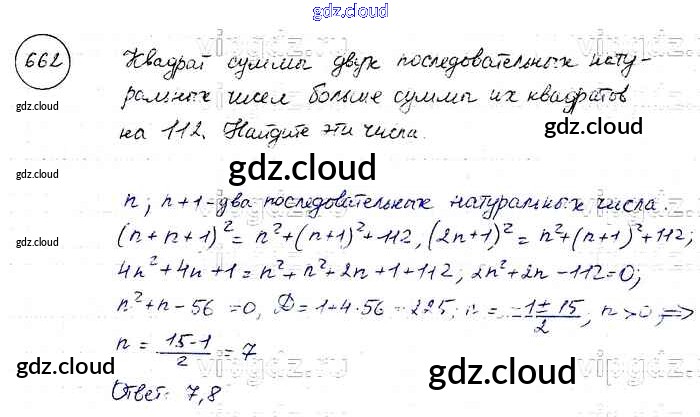 gdz.cloud
662 Квадрат суммы двух последовательных нату-
ральных чисел больше суммы их квадратов
на 112. Найдите эти числа.
gdz.cloud
gdz.cloud
gdz.cloud
gdz.cloud
n, n+1 - два последовательных натуральных числа.
(n+n+1)² = n²+(n+1)²+112, (2n+1)² = n²+(n+1)²+112;
gdz.cloud
4n²+4n+1 = n²+n²+2n+1+112; 2n²+2n-112=0;
n²+n-56=0, D=1+4·56=225, n = (-1±15)/2, n>0, =>
n = (15-1)/2 = 7
gdz.cloud
gdz.cloud
gdz.cloud
Ответ: 7,8